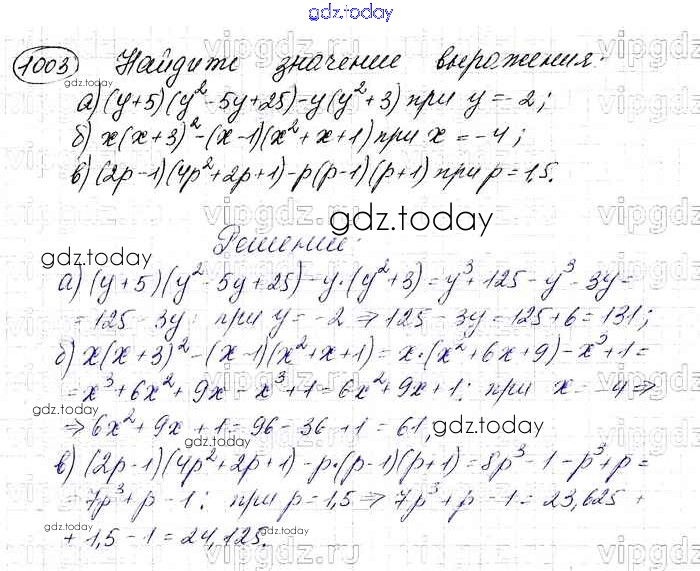 gdz.today
1003 Найдите значение выражения:
gdz.today
а) (y+5)(y²-5y+25)-y(y²+3) при y=-2;
б) x(x+3)²-(x-1)(x²+x+1) при x=-4;
в) (2p-1)(4p²+2p+1)-p(p-1)(p+1) при p=1,5.
gdz.today
gdz.today
Решение:
а) (y+5)(y²-5y+25)-y·(y²+3)=y³+125-y³-3y=
=125-3y; при y=-2 ⇒ 125-3y=125+6=131;
б) x(x+3)²-(x-1)(x²+x+1)=x·(x²+6x+9)-x³+1=
=x³+6x²+9x-x³+1=6x²+9x+1; при x=-4 ⇒
gdz.today
⇒ 6x²+9x+1=96-36+1=61,
gdz.today
в) (2p-1)(4p²+2p+1)-p·(p-1)(p+1)=8p³-1-p³+p=
=7p³+p-1; при p=1,5 ⇒ 7p³+p-1=23,625+
gdz.today
+1,5-1=24,125.
vipgdz.ru